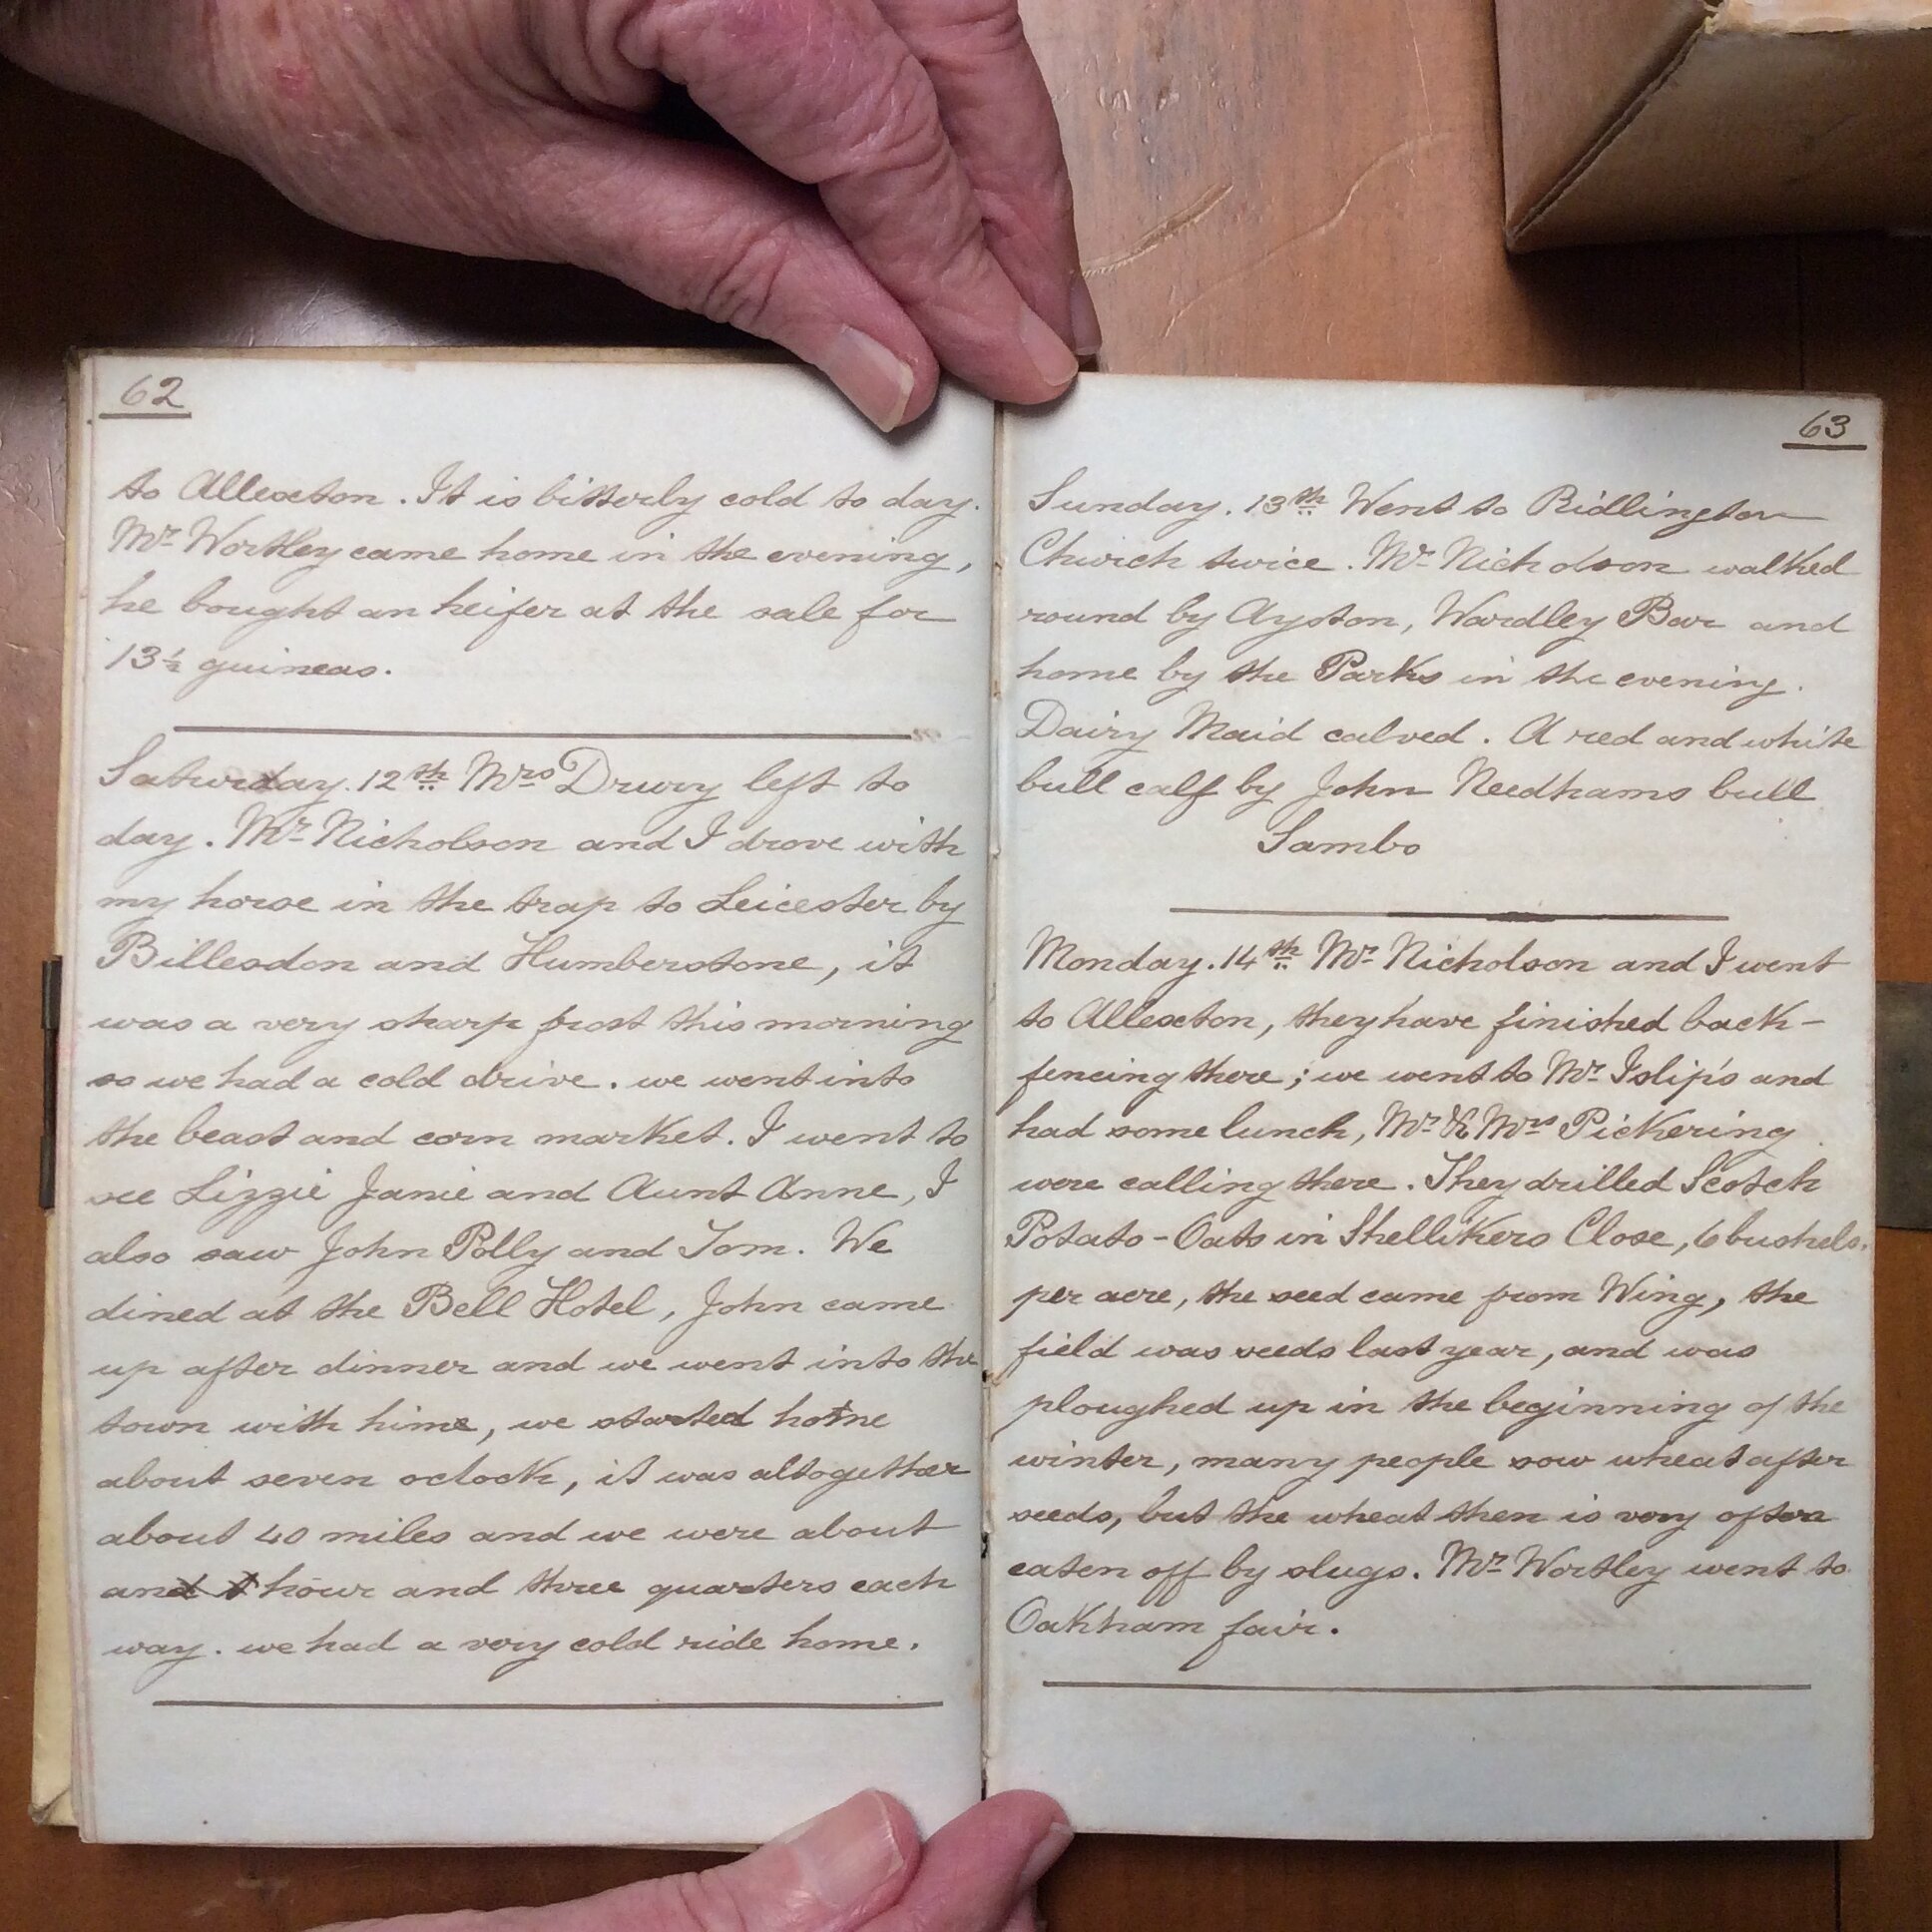 62
to Allexton. It is bitterly cold to day.
Mr Wortley came home in the evening,
he bought an heifer at the sale for
13½ guineas.
Saturday. 12th Mrs Drury left to
day. Mr Nicholson and I drove with
my horse in the trap to Leicester by
Billesdon and Humberstone, it
was a very sharp frost this morning
so we had a cold drive. we went into
the beast and corn market. I went to
see Lizzie Janie and Aunt Anne, I
also saw John Polly and Tom. We
dined at the Bell Hotel, John came
up after dinner and we went into the
town with him, we started home
about seven oclock, it was altogether
about 40 miles and we were about
an hour and three quarters each
way. we had a very cold ride home.
63
Sunday. 13th Went to Ridlington
Church twice. Mr Nicholson walked
round by Ayston, Wardley Bar and
home by the Parks in the evening.
Dairy Maid calved. A red and white
bull calf by John Needhams bull
Sambo
Monday. 14th Mr Nicholson and I went
to Allexton, they have finished back-
fencing there; we went to Mr Islip's and
had some lunch, Mr & Mrs Pickering
were calling there. They drilled Scotch
Potato-Oats in Shellikers Close, 6 bushels.
per acre, the seed came from Wing, the
field was seeds last year, and was
ploughed up in the beginning of the
winter, many people sow wheat after
seeds, but the wheat then is very often
eaten off by slugs. Mr Wortley went to
Oakham fair.